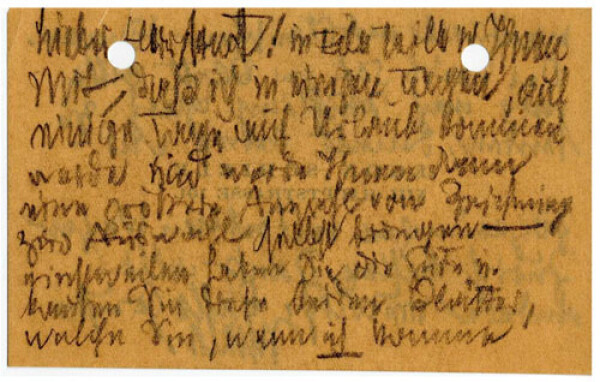 Lieber Herr Hauptm! in Eile teile ich Ihnen
Mit, daß ich in einigen Tagen, auf
einige Tage auf Urlaub kommen
werde und werde Ihnen dann
eine größere Anzahl von Zeichnung
zur Auswahl selbst bringen —
einsweilen haben Sie die Güte u.
Sie diese beiden Blätter,
welche Sie, wenn ich komme